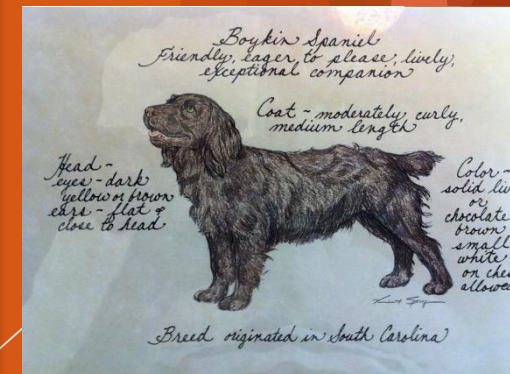 Boykin Spaniel
Friendly, eager to please, lively,
exceptional companion
Coat - moderately curly,
medium length
Head -
eyes - dark
yellow or brown
ears - flat &
close to head
Color -
solid liv
or
chocolate
brown
small
white
on ches
allowe
Breed originated in South Carolina